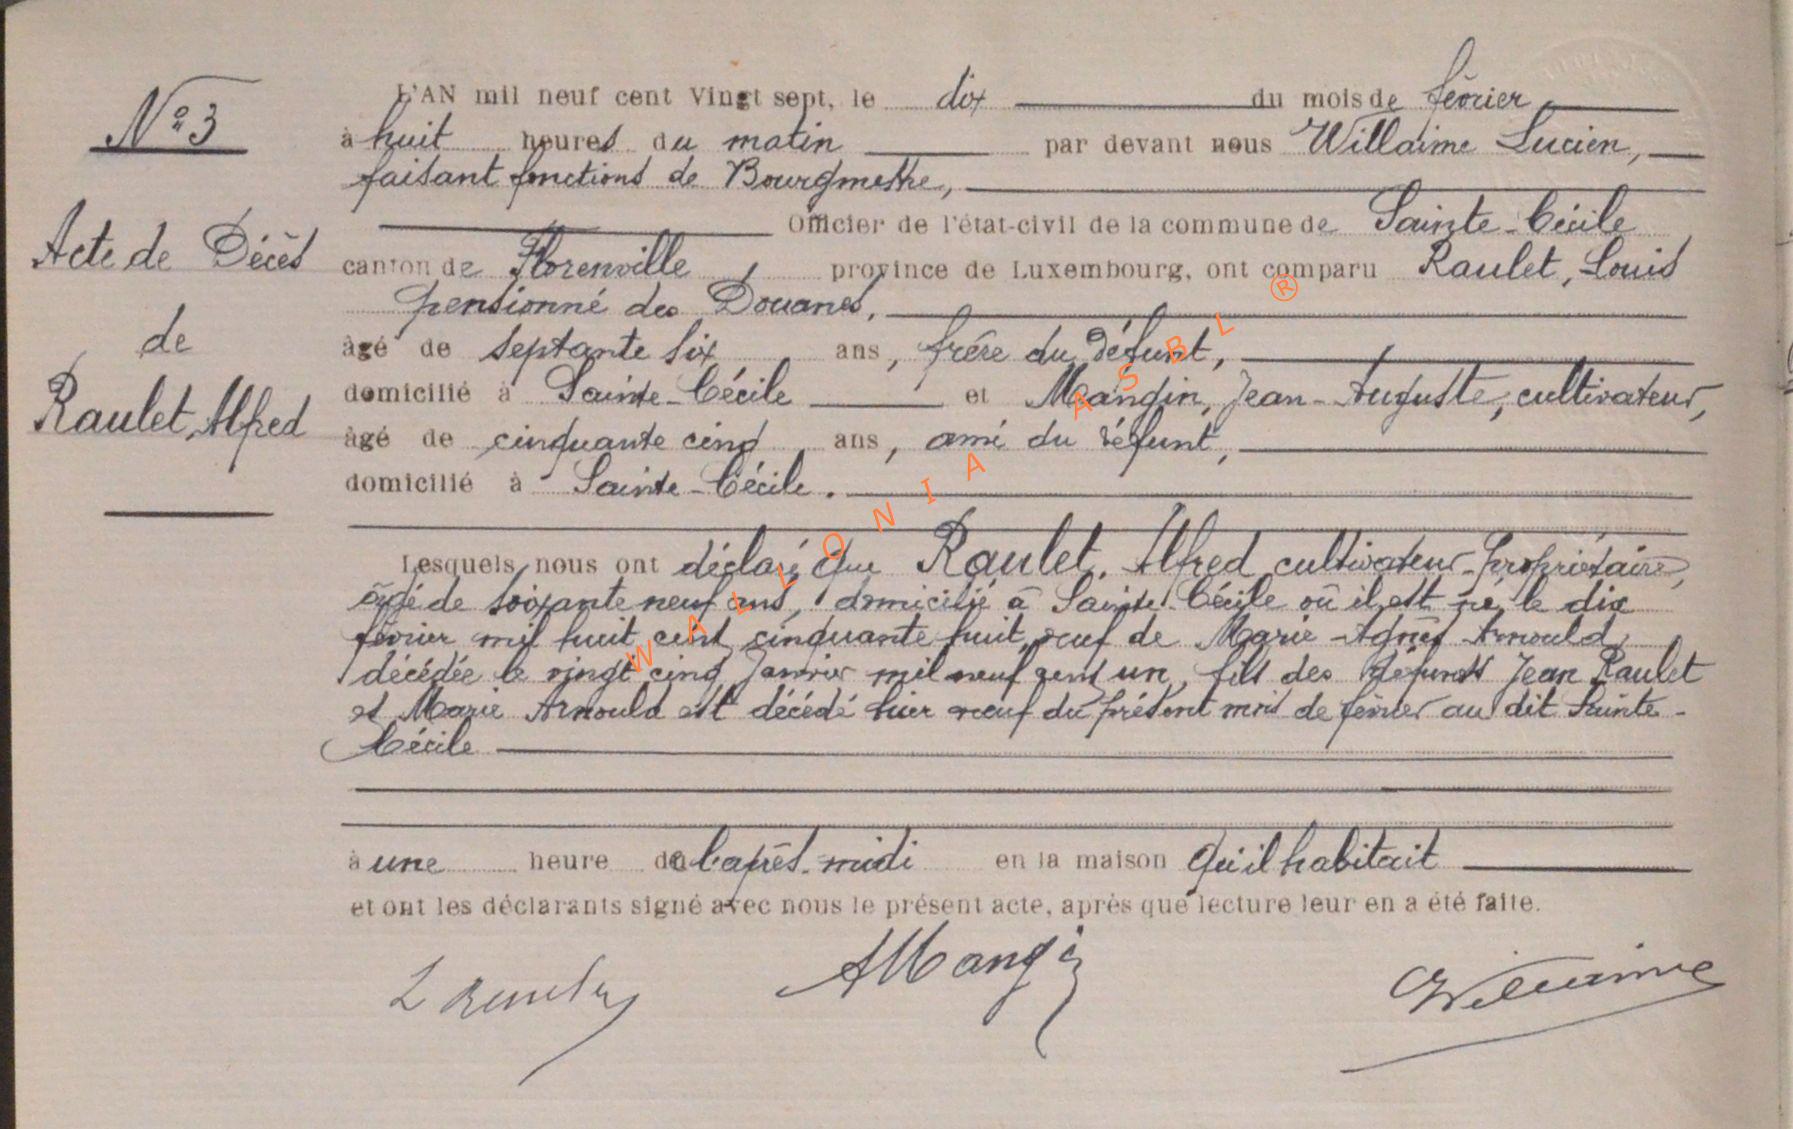 N° 3
Acte de Décès
de
Raulet, Alfred
L'AN mil neuf cent Vingt sept, le dix du mois de février
à huit heures du matin par devant nous Willaime Lucien,
faisant fonctions de Bourgmestre,
Officier de l'état-civil de la commune de Sainte-Cécile
canton de Florenville, province de Luxembourg, ont comparu Raulet, Louis
pensionné des Douanes,
âgé de septante six ans, frére du défunt,
domicilié à Sainte-Cécile et Mangin, Jean-Auguste, cultivateur,
âgé de cinquante cinq ans, ami du défunt,
domicilié à Sainte-Cécile.
Lesquels nous ont déclaré que Raulet, Alfred cultivateur-propriétaire,
âgé de soixante neuf ans, domicilié à Sainte-Cécile où il est né, le dix
février mil huit cent cinquante huit, veuf de Marie-Agnès Arnould,
décédée le vingt cinq Janvier mil neuf cent un, fils des défunts Jean Raulet
et Marie Arnould est décédé hier neuf du présent mois de février au dit Sainte-
Cécile
à une heure de l'après-midi en la maison qu'il habitait
et ont les déclarants signé avec nous le présent acte, après que lecture leur en a été faite.
L Raulet AMangin Willaime
WALLONIA ASBL ®